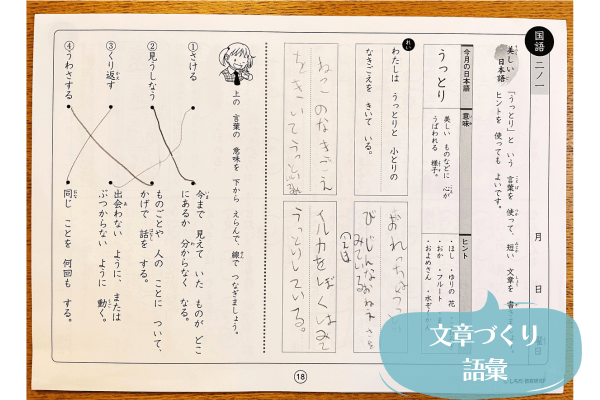 国語 二ノ一
美しい日本語
「うっとり」と いう 言葉を 使って、短い 文章を
ヒントを 使っても よいです。
月 日 曜日
今月の日本語
うっとり
意味
美しい ものなどに 心が
うばわれる 様子。
ヒント
・ほし ・ゆりの 花
・おか ・フルート
・およめさん
れい
わたしは うっとりと 小とりの
なきごえを きいて いる。
ねこのなきごえ
をきいてうっとり
イルカをぼくはみて
うっとりしている。
上の 言葉の 意味を 下から えらんで、線で つなぎましょう。
①さける
②見うしなう
③くり返す
④うわさする
今まで 見えて いた ものが どこ
にあるか 分からなく なる。
ものごとや 人の ことに ついて、
かげで 話を する。
出会わない ように、または
ぶつからない ように 動く。
同じ ことを 何回も する。
18
文章づくり
語彙